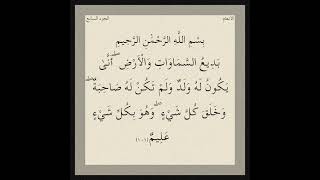 الانعام
الجزء السابع
بِسْمِ اللَّهِ الرَّحْمَٰنِ الرَّحِيمِ
بَدِيعُ السَّمَاوَاتِ وَالْأَرْضِ ۖ أَنَّىٰ
يَكُونُ لَهُ وَلَدٌ وَلَمْ تَكُنْ لَهُ صَاحِبَةٌ ۖ
وَخَلَقَ كُلَّ شَيْءٍ ۖ وَهُوَ بِكُلِّ شَيْءٍ
عَلِيمٌ (١٠١)